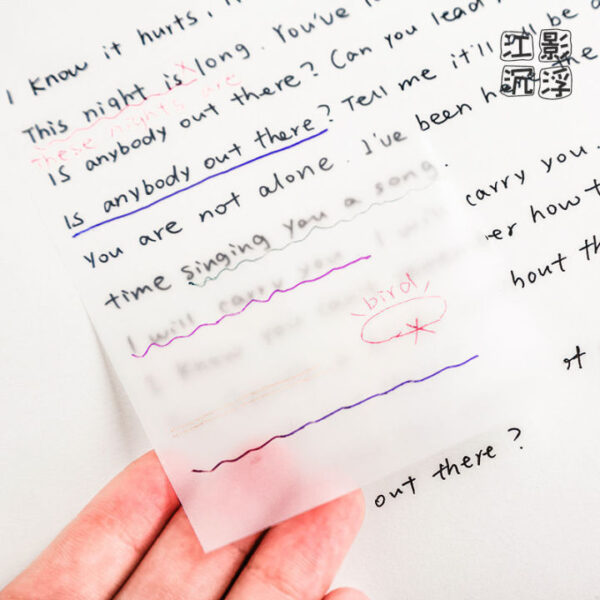 I know it hurts,
This night is long. You've
These nights are
is anybody out there? Can you lead
is anybody out there? Tell me it'll all be
You are not alone. I've been here the
time singing you a song.
carry you.
I will carry you. I will
how
I know you
bird
out there?
江影
沉浮